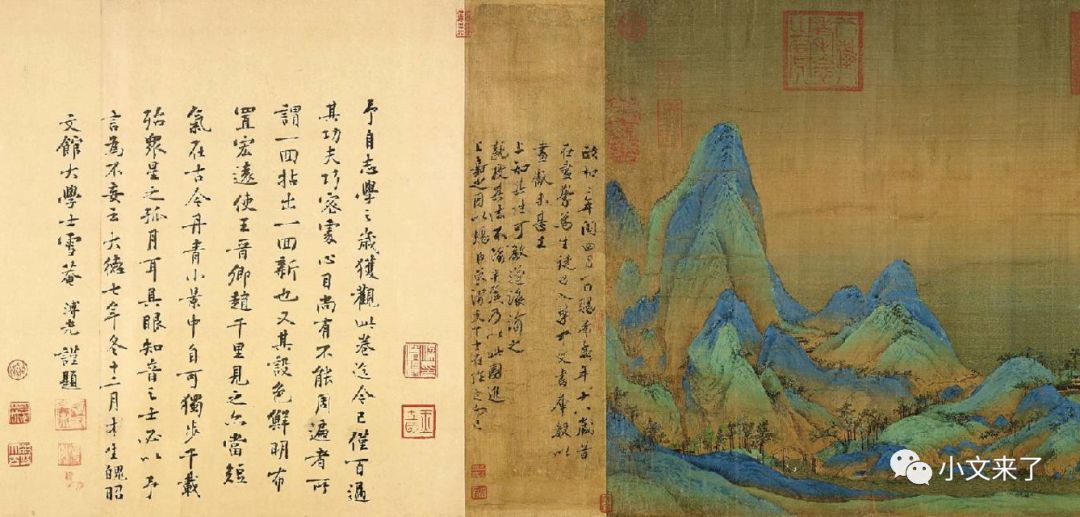 政和三年閏四月一日賜希孟年十八歲昔
在畫學為生徒召入禁中文書庫數以
畫獻未甚工
上知其性可教遂誨諭之
親授其法不踰半歲乃以此圖進
上嘉之因以賜臣京謂天下士在作之而已
予自志學之歲獲觀此卷迄今已僅百過
其功夫巧密處心目尚有不能周遍者所
謂一回拈出一回新也又其設色鮮明布
置宏遠使王晉卿趙千里見之亦當短
氣在古今丹青小景中自可獨步千載
殆衆星之孤月耳具眼知音之士必以予
言為不妄云大德七年冬十二月才生魄昭
文館大學士雪菴溥光謹題
小文来了